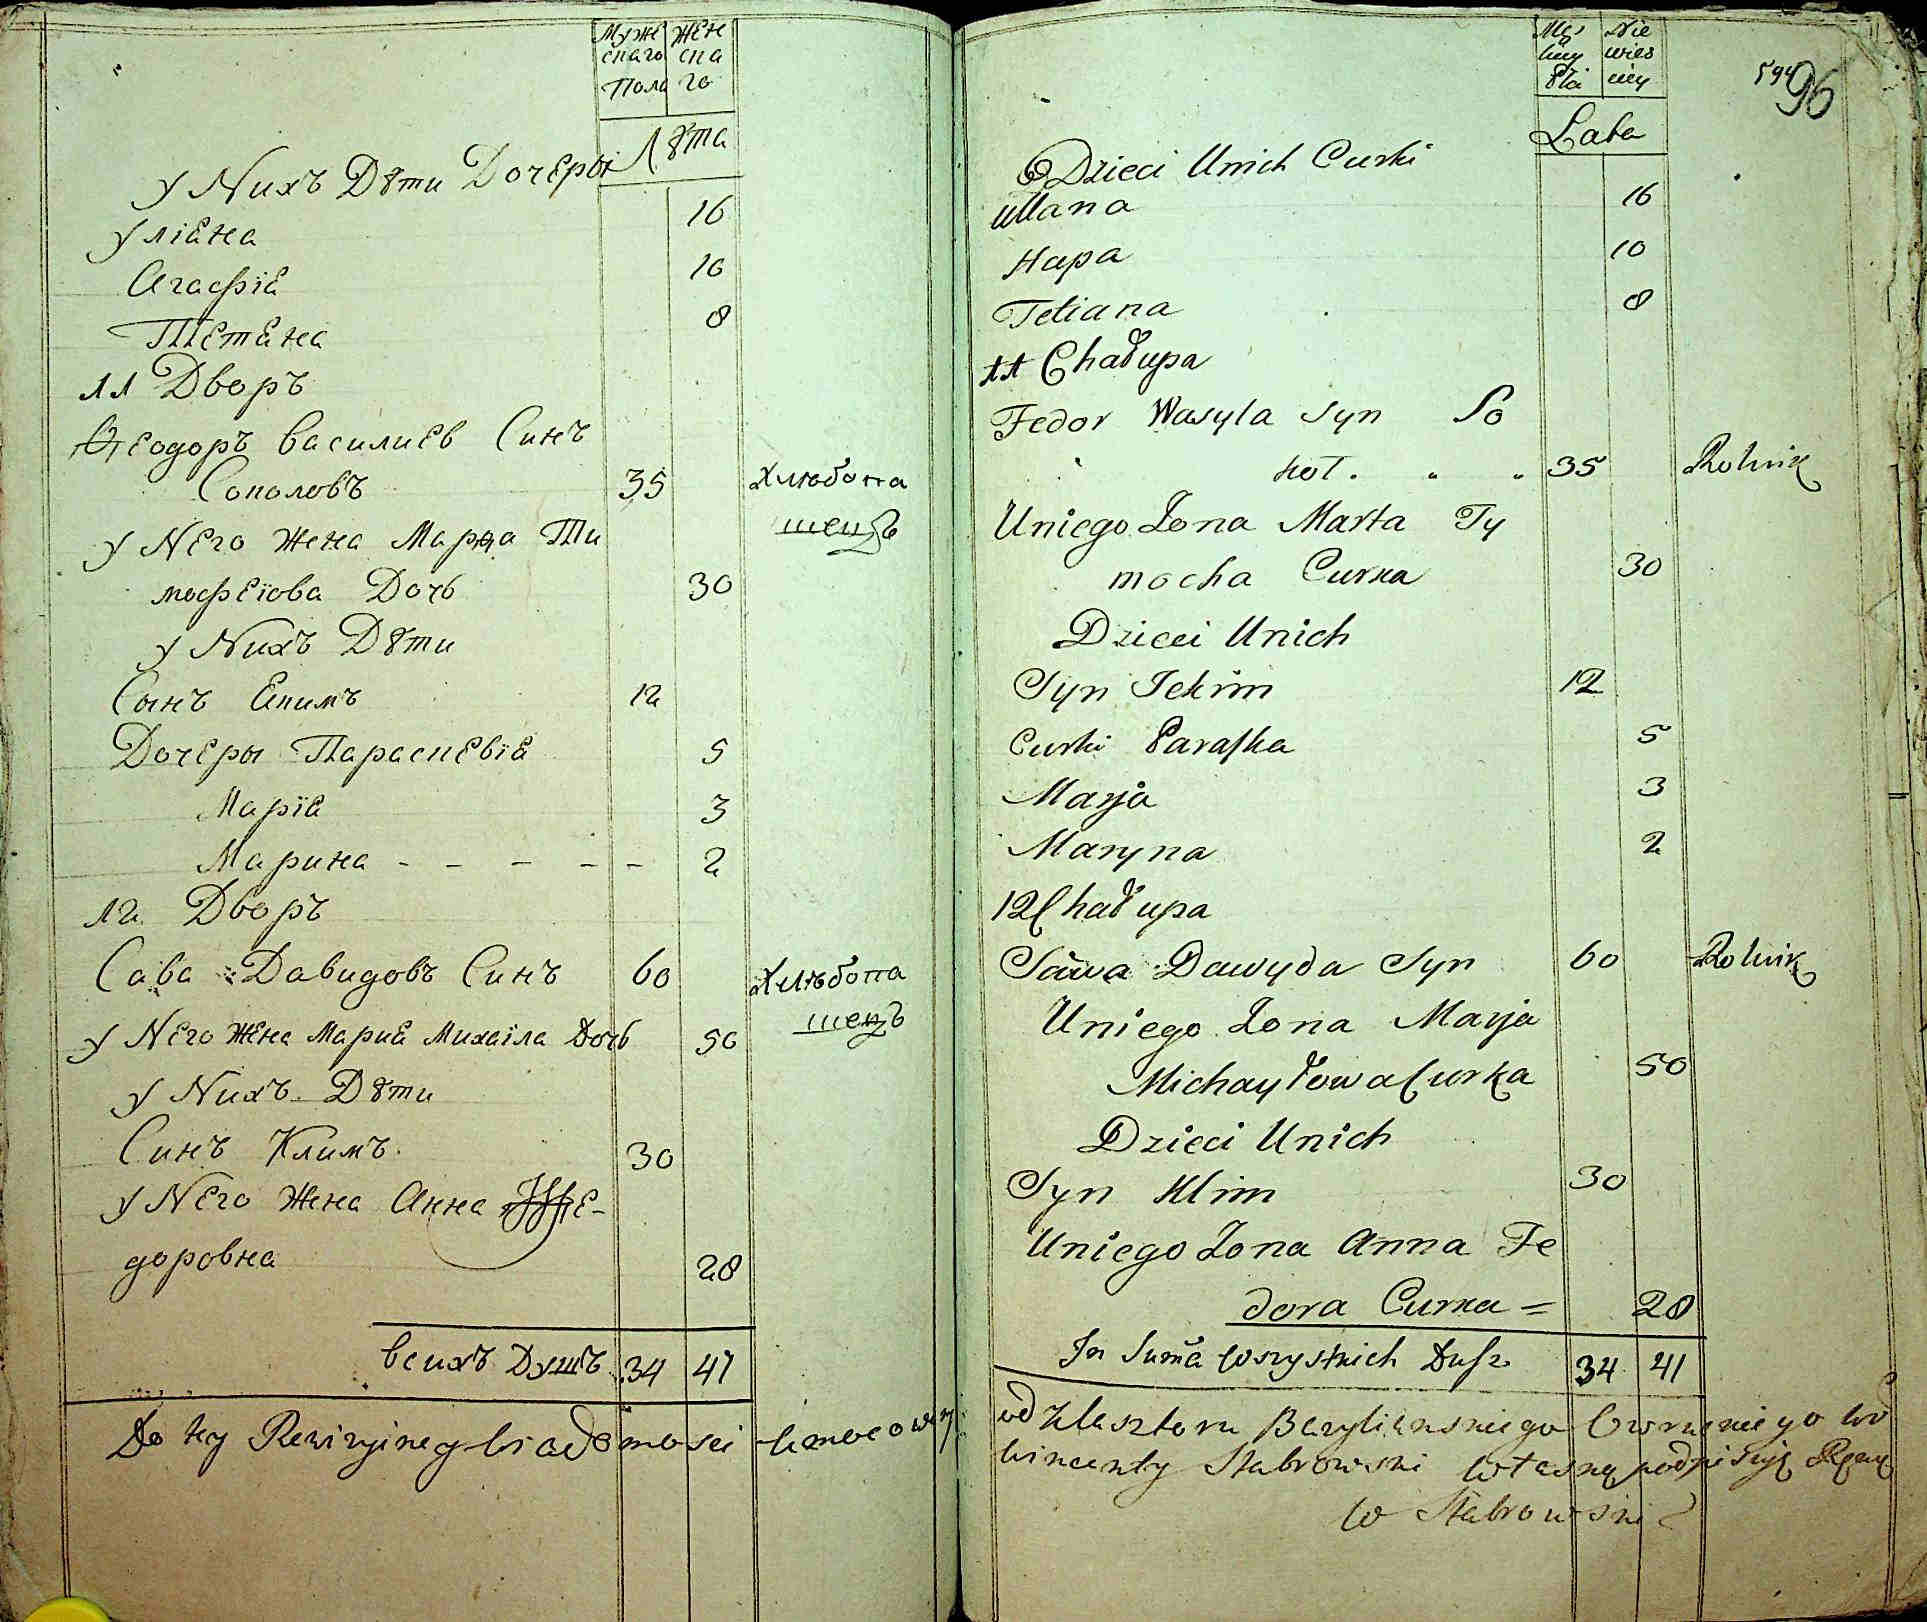 Муже Жен
скаго ска
Пола го
Лѣта
У Нихъ Дѣти Дочеры
Уліана 16
Агафія 10
Тетяна 8
11 Дворъ
Ѳеодоръ Василиев Синъ
Соколовъ 35 Хлѣбопа
шецъ
У Него Жена Марѳа Ти
мофеіова Дочь 30
У Нихъ Дѣти
Сынъ Екимъ 12
Дочеры Параскевія 5
Марія 3
Марина - - - - - 2
12 Дворъ
Сава Давидовъ Синъ 60 Хлѣбопа
шецъ
У Него Жена Мария Михаіла Дочь 50
У Нихъ Дѣти
Синъ Климъ 30
У Него Жена Анна Ѳе-
доровна 28
всихъ Душъ 34 41
Do tey Rewizyiney wiadomosci
Męs Nie
kiey wies
Płci ciey
594
96
Lata
Dzieci Unich Curki
Ullana 16
Hapa 10
Tetiana 8
11 Chałupa
Fedor Wasyla Syn So
koł 35 Rolnik
Uniego Zona Marta Ty
mocha Curka 30
Dzieci Unich
Syn Jekim 12
Curki Paraska 5
Marja 3
Maryna 2
12 Chałupa
Sawa Dawyda Syn 60 Rolnik
Uniego Zona Marja
Michayłowa Curka 50
Dzieci Unich
Syn Klim 30
Uniego Zona Anna Fe
dora Curka = 28
In Suma wszystkich Dusz 34 41
od Klasztoru Bazylianskiego Owruckiego
Wincenty Stabrowski własną podpisuję Ręką
W Stabrowski